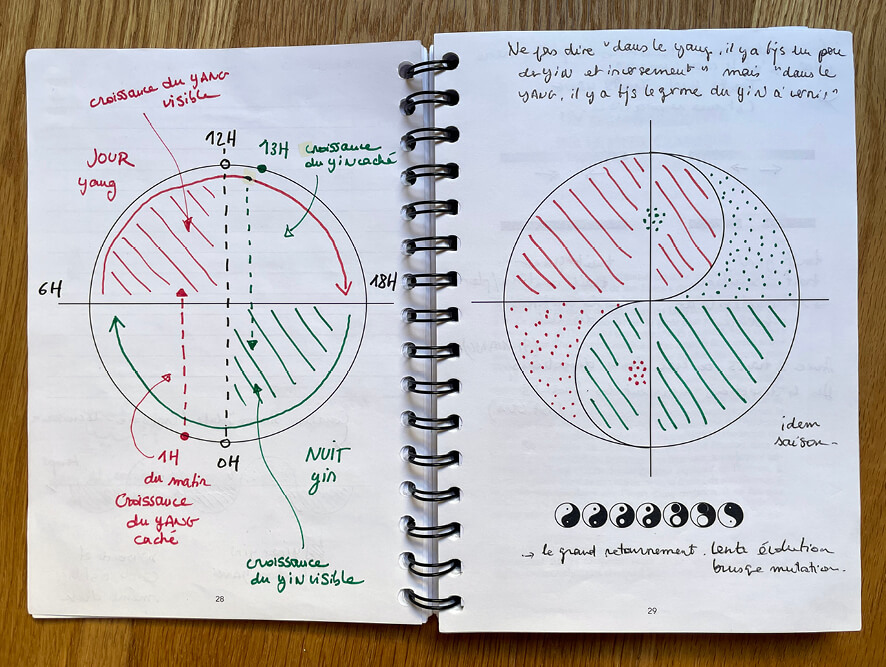 croissance du YANG
visible
JOUR
yang
12H
13H
croissance
du yin caché
6H
18H
1H
du matin
Croissance
du YANG
caché
0H
NUIT
yin
croissance
du yin visible
28
Ne pas dire "dans le yang, il y a tjs un peu
du yin et inversement" mais "dans le
YANG, il y a tjs le germe du yin à venir,"
idem
saison.
→ le grand retournement. lente évolution
brusque mutation.
29